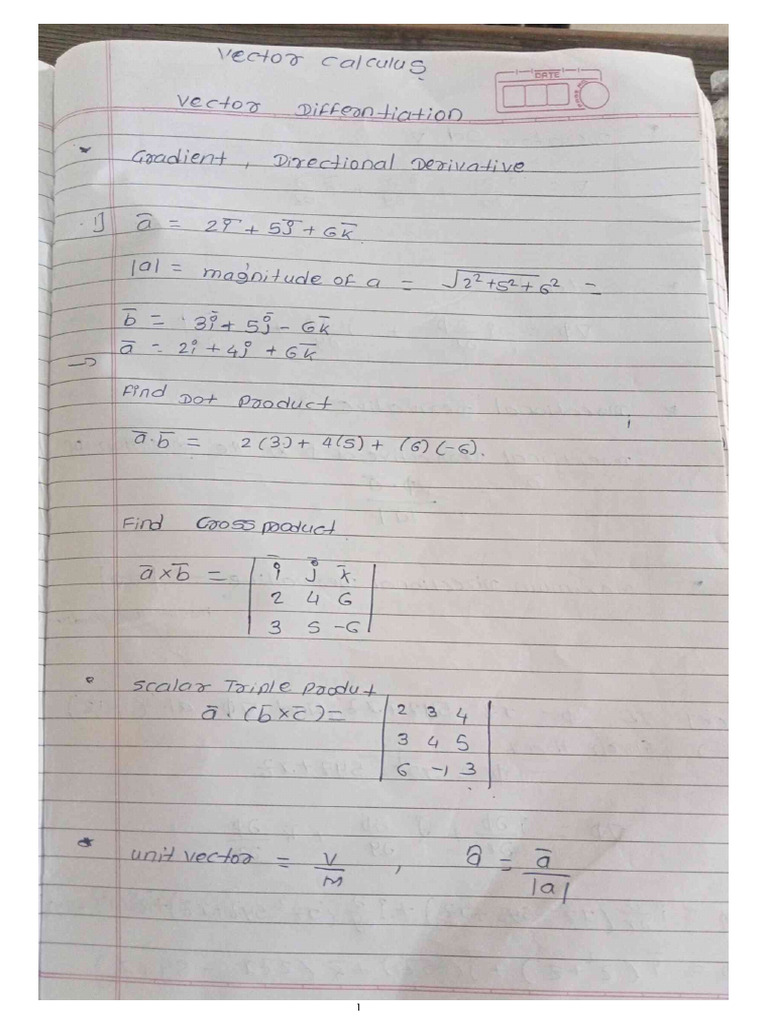 Vector Calculus
DATE
Vector Differntiation
* Gradient, Directional Derivative
1] a̅ = 2i̅ + 5j̅ + 6k̅
|a| = magnitude of a = √2²+5²+6² =
b̅ = 3i̅ + 5j̅ - 6k̅
→ a̅ = 2i + 4j + 6k̅
Find Dot Product
a̅.b̅ = 2(3) + 4(5) + (6)(-6).
Find Cross product
a̅×b̅ = | i̅ j̅ k̅ |
| 2 4 6 |
| 3 5 -6 |
• Scalar Triple Produt
a̅.(b̅×c̅) = | 2 3 4 |
| 3 4 5 |
| 6 -1 3 |
* unit vector = V/M , â = a̅/|a|
1